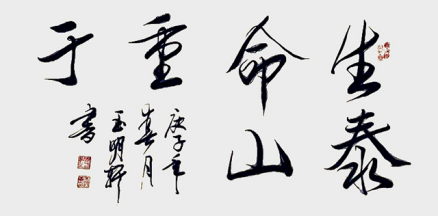 生命重于
泰山
庚子年
春月
玉明轩
書